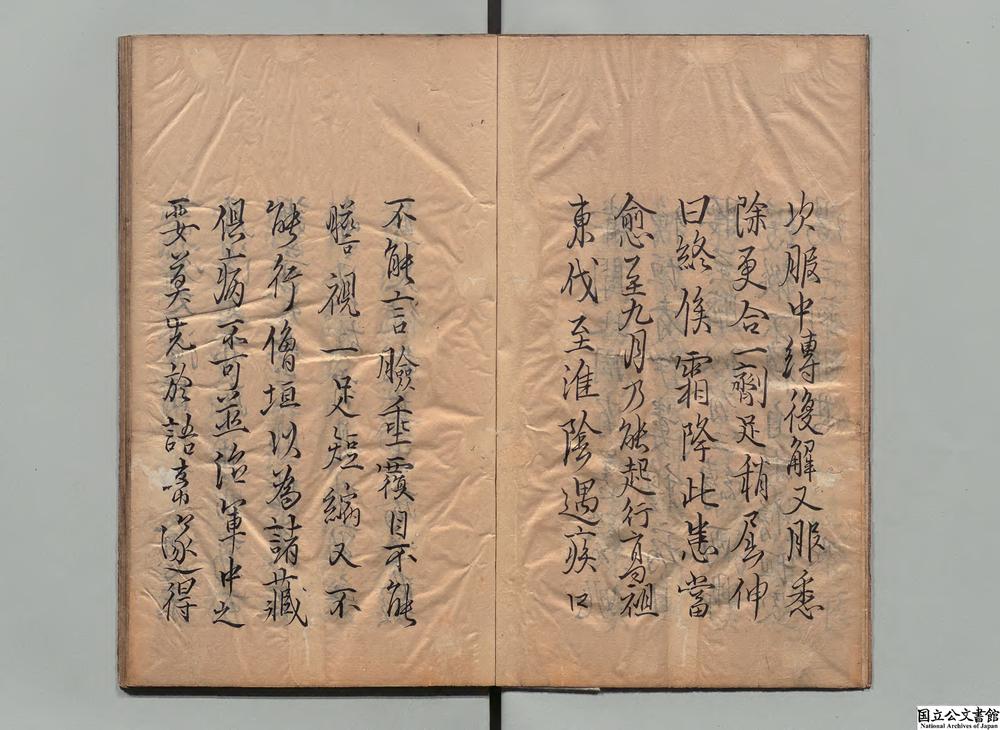 次服中縛復解又服悉
除更合一劑足稍屈伸
曰終俟霜降此患當
愈至九月乃能起行高祖
東伐至淮陰遇疾口
不能言臉垂覆目不能
瞻視一足短縮又不
能行僧垣以為諸藏
俱病不可並治軍中之
要莫先於語案遂得
国立公文書館
National Archives of Japan